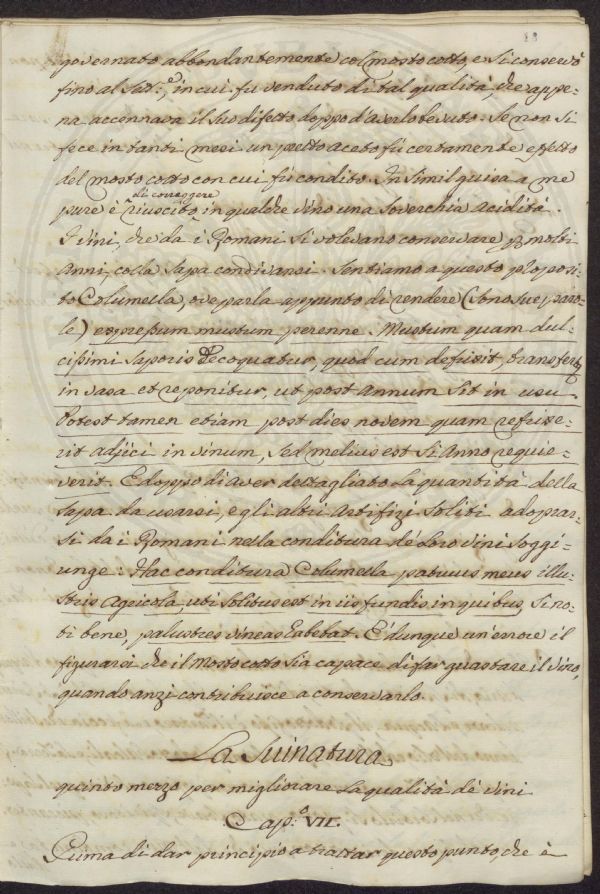 governato abbondantemente col mosto cotto, e si conservò
fino al Sett:e, in cui fu venduto di tal qualità, che appe-
na accennava il suo difetto doppo d'averlo bevuto. Se non si
fece in tanti mesi un pretto aceto fù certamente effetto
del mosto cotto con cui fù condito. In simil guisa a me
di correggere
pure è riuscito, in qualche vino una soverchia acidità.
I vini, che da i Romani si volevano conservare p molti
Anni, colla sapa condivansi. Sentiamo a questo proposi-
to Columella, ove parla appunto di rendere (sono sue paro-
le) expressum mustum perenne. Mustum quam dul-
cissimi saporis decoquatur, quod cum defixit, transfertq
in vasa et reponitur, ut post annum sit in usu.
Potest tamen etiam post dies novem quam refrixe-
rit adjici in vinum, sed melius est si Anno requie-
verit. E doppo di aver dettagliato la quantità della
sapa da usarsi, e gli altri artifizi soliti adoprar-
si da i Romani nella conditura de loro vini soggi-
unge: Hac conditura Columella patruus meus illu-
stris Agricola uti solitus est in iis fundis in quibus, si no-
ti bene, palustres vineas habebat. È dunque un'errore il
figurarsi che il Mosto cotto sia capace di far guastare il vino,
quando anzi contribuisce a conservarlo.
La Svinatura
quinto mezzo per migliorare la qualità de vini
Cap:o VII.
Prima di dar principio a trattar questo punto, che è